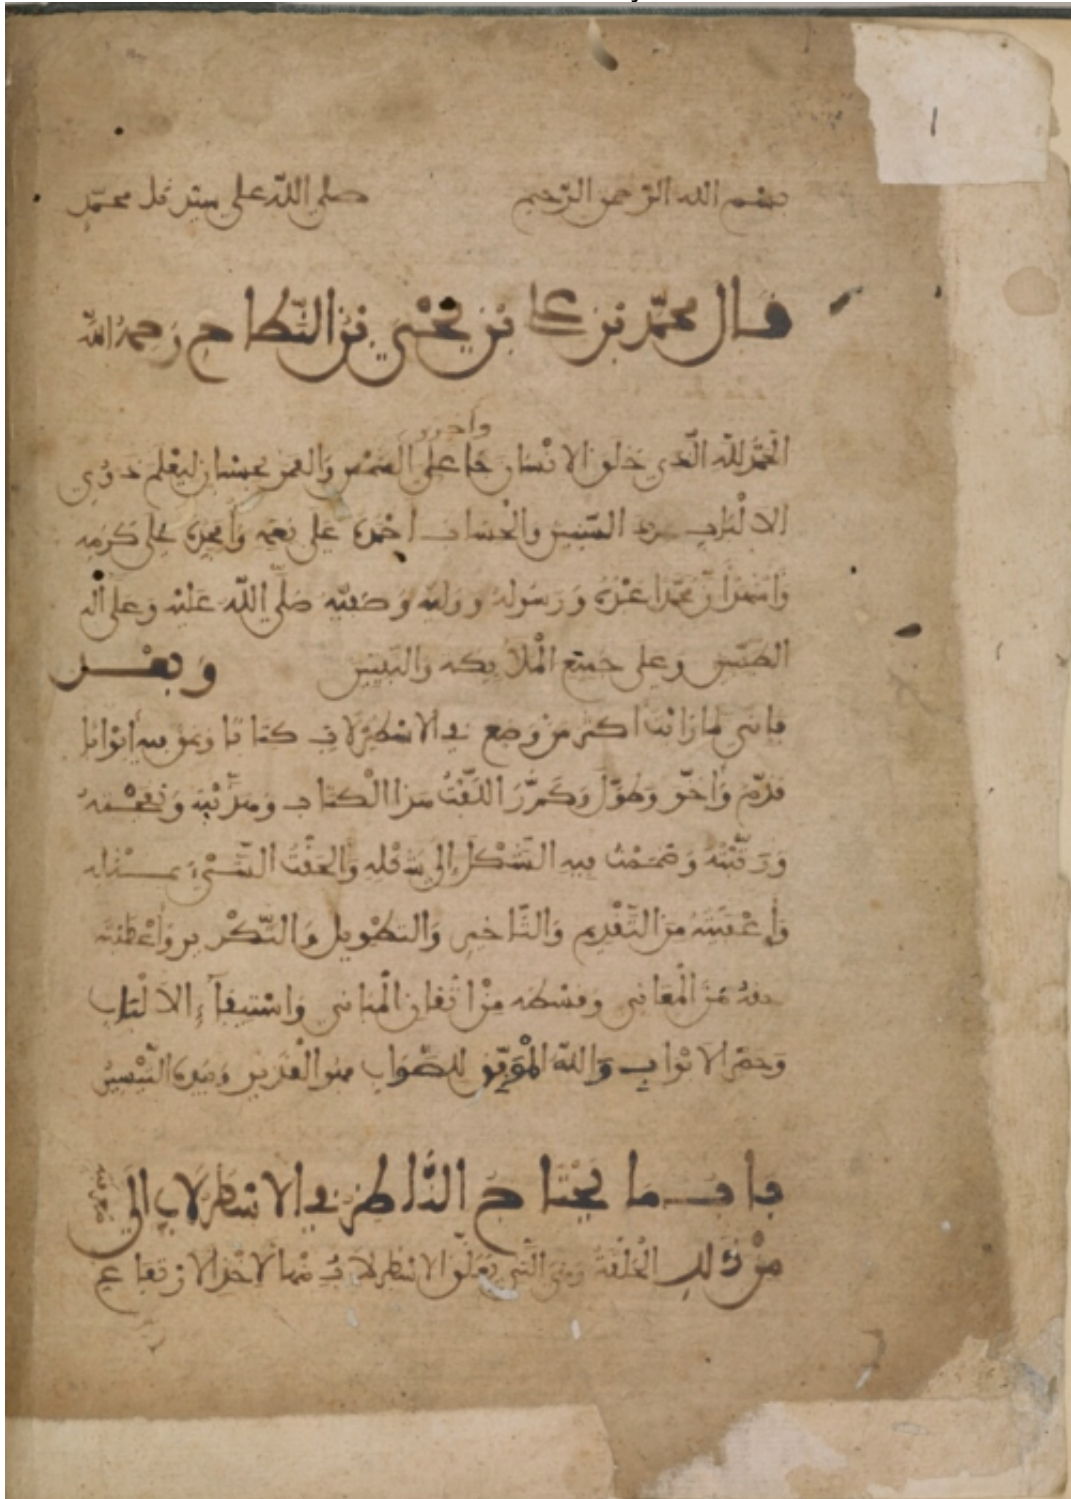 1
بسم الله الرحمن الرحيم صلى الله على سيدنا محمد
قال محمد بن علي بن يحيى بن النطاح رحمه الله
الحمد لله الذي خلق الانسان وأجرى الشمس والقمر بحسبان ليعلم ذوي
الالباب عدد السنين والحساب احمده على نعمه وأمجده على كرمه
وأشهد أن محمدا عبده ورسوله ووليه وصفيه صلى الله عليه وعلى آله
الطيبين وعلى جميع الملائكة والنبيين وبعد
فاني لما رأيت اكثر من وضع في الاسطرلاب كتابا وبوبه أبوابا
قدم وأخر وطول وكرر ألفت هذا الكتاب وهذبته ونقحته
ورتبته وضممت فيه الشكل إلى شكله وألحقت الشيء بمثله
وأعفيته من التقديم والتاخير والتطويل والتكرير وأعطيته
حقه من المعاني وقسطه من اتقان المباني واستيفاء الالباب
وحصر الابواب والله الموفق للصواب فهو القدير وبيده التيسير
باب ما يحتاج الناظر في الاسطرلاب إلى معرفته
من ذلك الحلقة وهي التي يعلق الاسطرلاب منها لأخذ الارتفاع